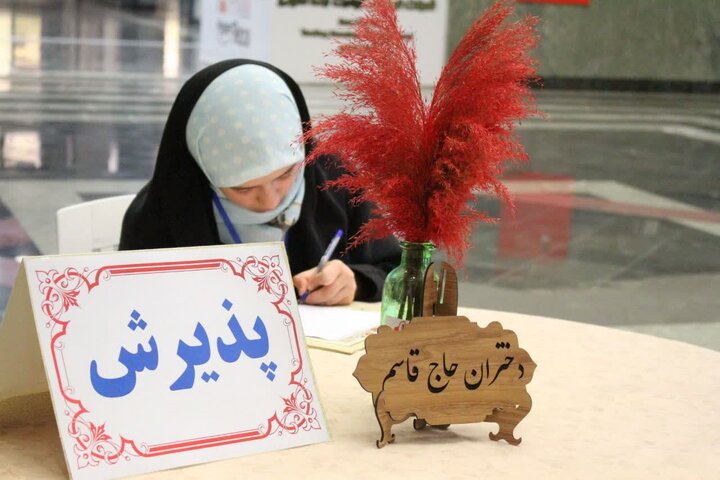 پذیرش
دختران حاج قاسم